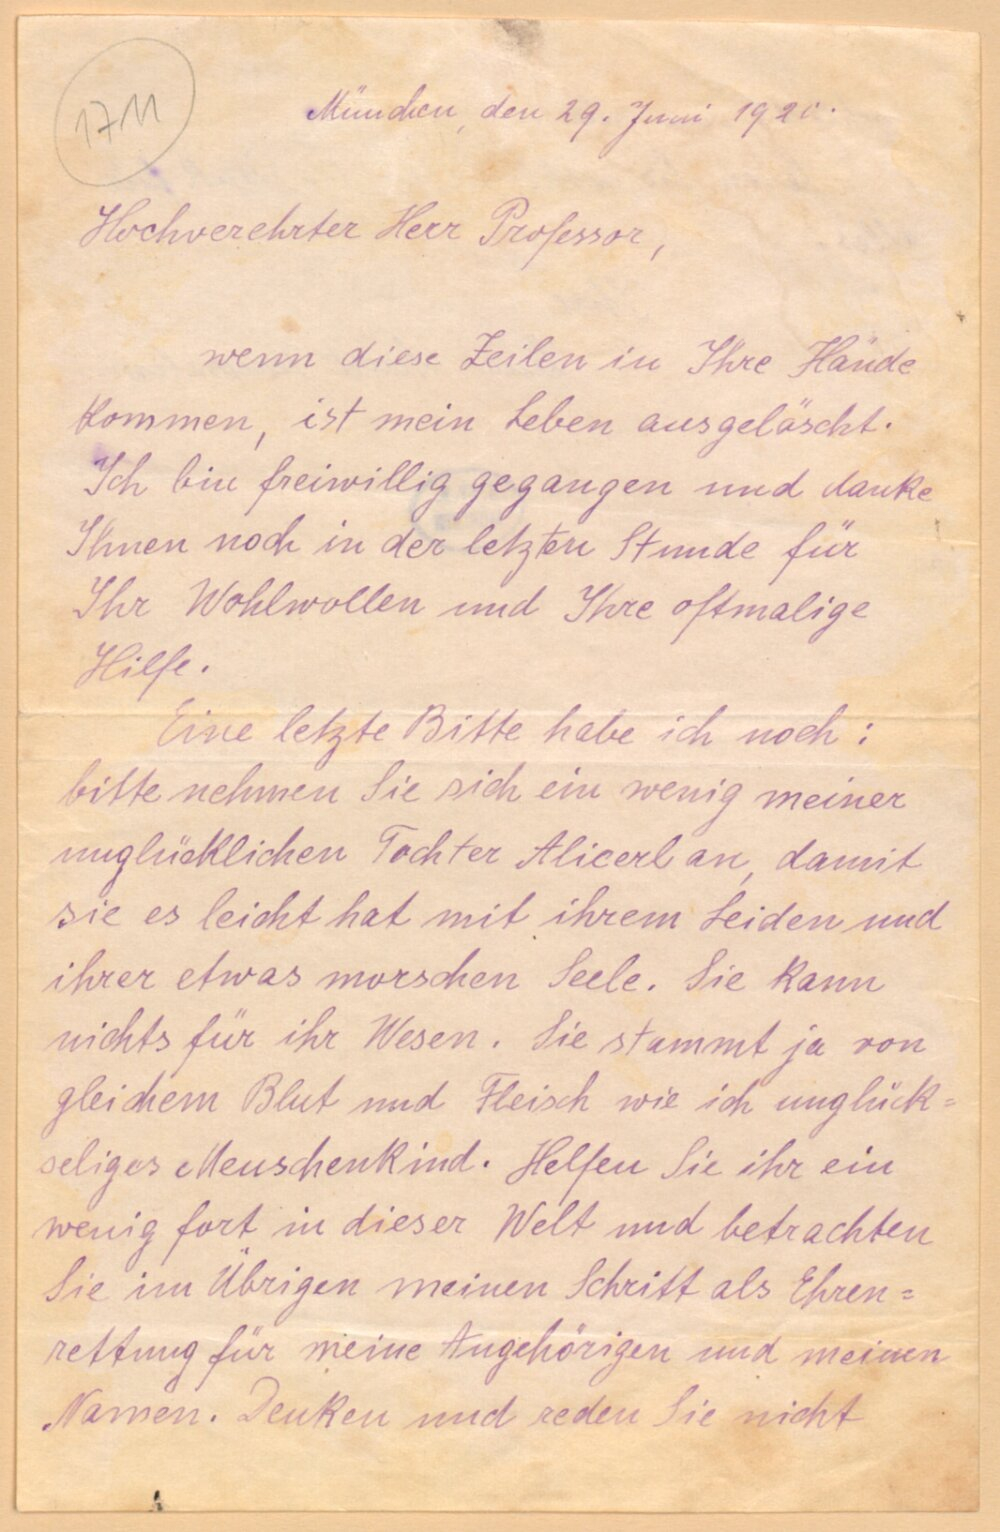 1711
München, den 29. Juni 1920.
Hochverehrter Herr Professor,
wenn diese Zeilen in Ihre Hände
kommen, ist mein Leben ausgelöscht.
Ich bin freiwillig gegangen und danke
Ihnen noch in der letzten Stunde für
Ihr Wohlwollen und Ihre oftmalige
Hilfe.
Eine letzte Bitte habe ich noch:
bitte nehmen Sie sich ein wenig meiner
unglücklichen Tochter Alicerl an, damit
sie es leicht hat mit ihrem Leiden und
ihrer etwas morschen Seele. Sie kann
nichts für ihr Wesen. Sie stammt ja von
gleichem Blut und Fleisch wie ich unglück=
seliges Menschenkind. Helfen Sie ihr ein
wenig fort in dieser Welt und betrachten
Sie im Übrigen meinen Schritt als Ehren=
rettung für meine Angehörigen und meinen
Namen. Denken und reden Sie nicht